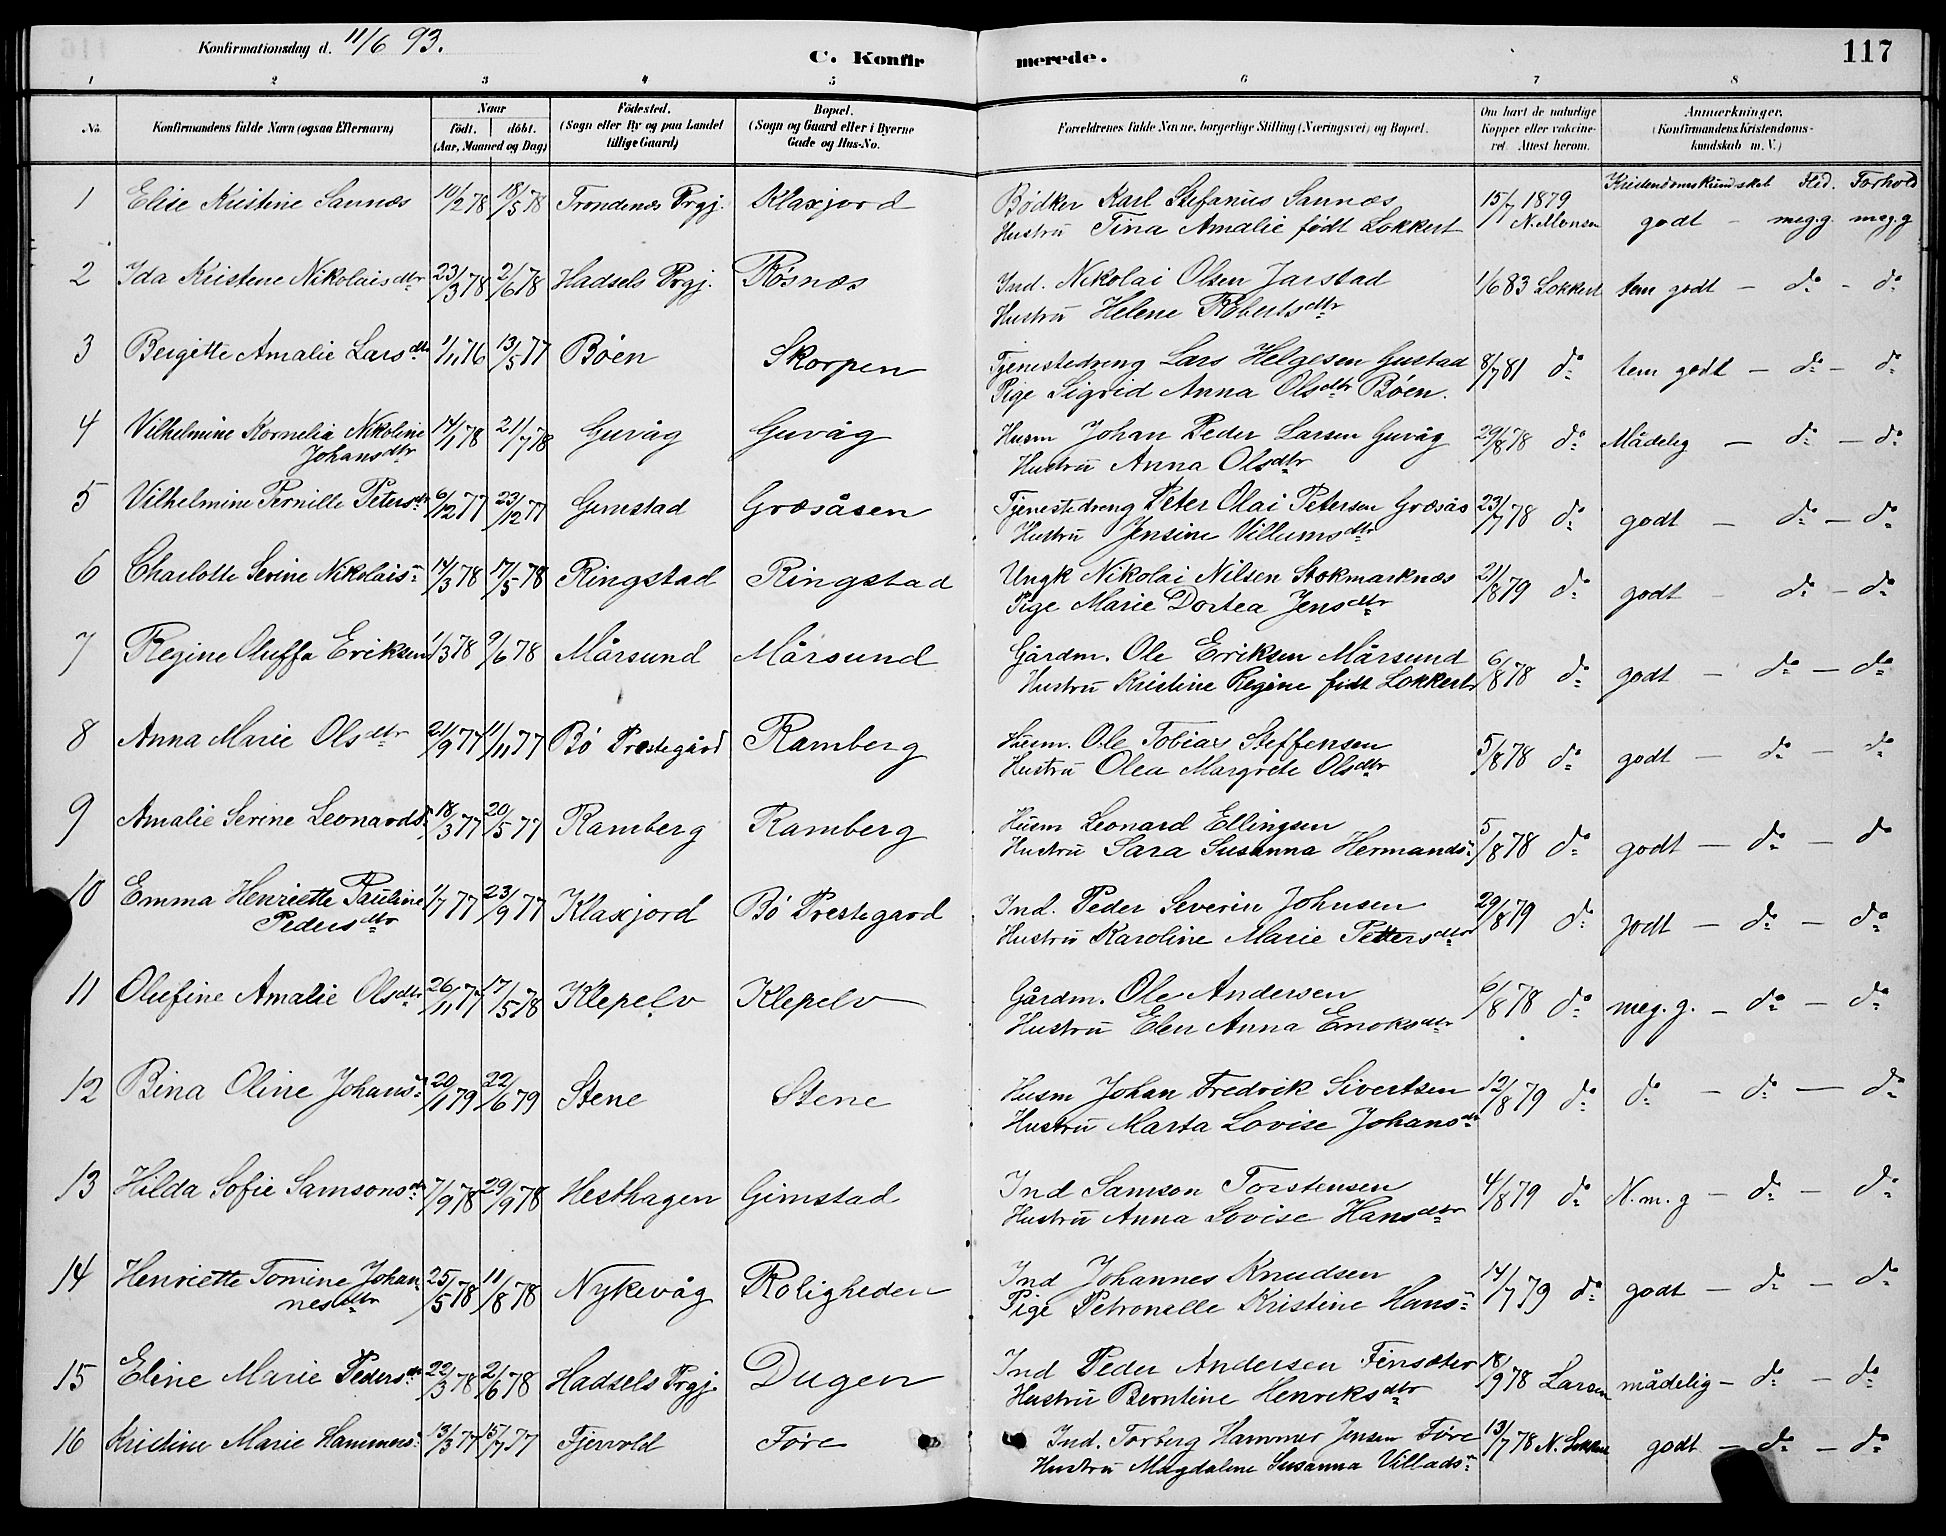 Konfirmationsdag d. 11/6 93.
C. Konfirmerede.
117
1 2 3 4 5 6 7 8
No. Konfirmandens fulde Navn (ogsaa Efternavn) Naar födt. döbt. (Aar, Maaned og Dag) Födested. (Sogn eller By og paa Landet tillige Gaard) Bopæl. (Sogn og Gaard eller i Byerne Gade og Hus-No. Forældrenes fulde Navne, borgerlige Stilling (Næringsvei) og Bopæl. Om havt de naturlige Kopper eller vakcineret. Attest herom. Anmærkninger. (Konfirmandens Kristendomskundskab m. V.)
Kristendomskundskab Flid. Forhold
1 Elise Kristine Sannæs 10/2 78 18/5 78 Trondenæs Prgj. Klaxjord Bødker Karl Stefanus Sannæs 15/7 1879
Hustru Tina Amalie født Lokkert N. Monsen godt – meg.g. meg.g
2 Ida Kristene Nikolaisdtr 23/3 78 2/6 78 Hadsels Prgj. Røsnæs Ind. Nikolai Olsen Jarstad 1/6 83 Lokkert tem godt – do – do
Hustru Helene Robertsdtr
3 Bergitte Amalie Larsdtr 1/11 76 13/5 77 Bøen Skorpen Tjenestedreng Lars Helgesen Gustad 8/7 81 do tem godt – do – do
Pige Sigrid Anna Olsdtr Bøen.
4 Vilhelmine Kornelia Nikoline 14/1 78 21/7 78 Guvåg Guvåg Husm Johan Peder Larsen Guvåg 29/8 78 do Mådelig – do – do
Johansdtr Hustru Anna Olsdtr
5 Vilhelmine Pernille Petersdtr 6/12 77 23/12 77 Gimstad Græsåsen Tjenestedreng Peter Olai Petersen Græsås 23/7 78 do godt – do – do
Hustru Jensine Villumsdtr
6 Charlotte Serine Nikolais– 14/3 78 17/5 78 Ringstad Ringstad Ungk Nikolai Nilsen Stokmarknæs 21/8 79 do godt – do – do
Pige Marie Dortea Jensdtr
7 Regine Oluffa Eriksen 1/3 78 9/6 78 Mårsund Mårsund Gårdm. Ole Eriksen Mårsund 6/8 78 do godt – do – do
Hustru Kristine Regine født Lokkert
8 Anna Marie Olsdtr 21/9 77 11/11 77 Bø Prestegård Ramberg Husm. Ole Tobias Steffensen 5/8 78 do godt – do – do
Hustru Olea Margrete Olsdtr
9 Amalie Serine Leonards– 18/3 77 20/5 77 Ramberg Ramberg Husm Leonard Ellingsen 5/8 78 do godt – do – do
Hustru Sara Susanna Hermands–
10 Emma Henriette Pauline 1/7 77 23/9 77 Klaxjord Bø Prestegard Ind. Peder Severin Johnsen 29/8 79 do godt – do – do
Pedersdtr Hustru Karoline Marie Pettersdtr
11 Olufine Amalie Olsdtr 26/11 77 17/5 78 Klepelv Klepelv Gårdm. Ole Andersen 6/8 78 do meg. g. – do – do
Hustru Elen Anna Enoksdtr
12 Bina Oline Johans– 20/1 79 22/6 79 Stene Stene Husm Johan Fredrik Sivertsen 12/8 79 do do – do – do
Hustru Marta Lovise Johansdtr
13 Hilda Sofie Samsonsdtr 7/9 78 29/9 78 Hesthagen Gimstad Ind Samson Torstensen 4/8 79 do N. m. g – do – do
Hustru Anna Lovise Hansdtr
14 Henriette Tomine Johan 25/5 78 11/8 78 Nykevåg Roligheden Ind Johannes Knudsen 14/7 79 do godt – do – do
nesdtr Pige Petronelle Kristine Hans–
15 Eline Marie Pedersdtr 22/3 78 2/6 78 Hadsels Prgj. Dugen Ind Peder Andersen Finsæter 18/9 78 Larsen mådelig – do – do
Hustru Berntine Henriksdtr
16 Kristine Marie Hammers– 13/3 77 15/7 77 Fjervold Føre Ind. Torberg Hammer Jensen Føre 13/7 78 N. godt – do – do
Hustru Magdalene Susanna Villads–